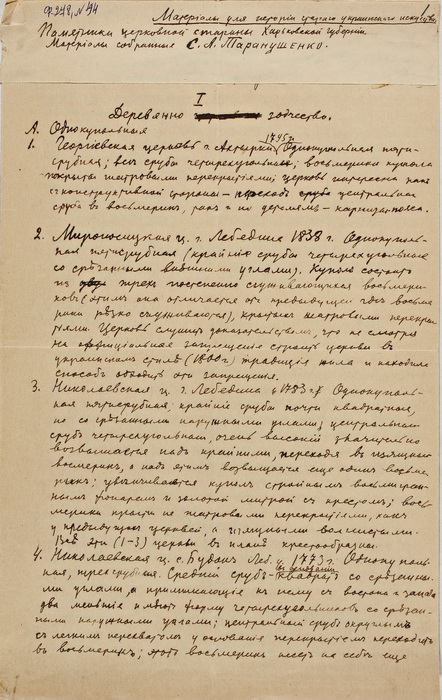 Ф 278, №94
Матерiалы для исторiи стараго украинскаго искусства
Памятники церковной старины Харьковской губернiи
Матерiалы собранные С. А. Таранушенко.
I
Деревянно зодчество.
А. Однокупольная
1. Георгiевская церковь г. Ахтырки 1745 г. Однокупольная пяти-
срубная; все срубы четыреугольные; восьмерики купола
покрыты шатровыми перекрытiями; церковь интересна как
с конструктивной стороны – центральнаго
сруба в восьмерик, так и по деталям – карнизы пояса.
2. Мироносицкая ц. г. Лебедина 1838 г. Однокуполь-
ная пятисрубная (крайнiе срубы четыреугольные
со срезанными внешними углами). Купол состоит
из трех постепенно съуживающихся восьмери-
ков (этим она отличается от предыдущей где восьме-
рики резко съуживаются), крытых шатровыми перекры-
тiями. Церковь служит доказательством, что не смотря
на оффицiальное запрещенiе строить церкви в
украинском стиле (1800 г.) традицiя жила и находила
способ обходить эти запрещенiя.
3. Николаевская ц. г. Лебедина 1783 г. Однокуполь-
ная пятисрубная; крайнiе срубы почти квадратные,
но со срезанными наружными углами; центральный
сруб четыреугольный, очень высокiй значительно
возвышается над крайними, переходя в
восьмерик, а над этим возвышается еще один восьме-
рик; увенчивается купол стройным восьмигран-
ным фонарем и золотой митрой с крестом; вось-
мерики крыты не шатровыми перекрытiями, как
у предыдущих церквей, а изящными волнистыми.
Все эти (1-3) церкви в плане крестообразны.
4. Николаевская ц. с. Будын Леб. у. 1773 г. Однокуполь-
ная, трехсрубная. Среднiй сруб квадрат со срезанны-
ми углами, а примыкающiе к нему с востока и запада
два меньшiе имеют форму четыреугольников со срезан-
ными наружными углами; центральный сруб округлым
с легким перехватом у основанiя перекрытiем переходит
в восьмерик; этот восьмерик несет на себе еще